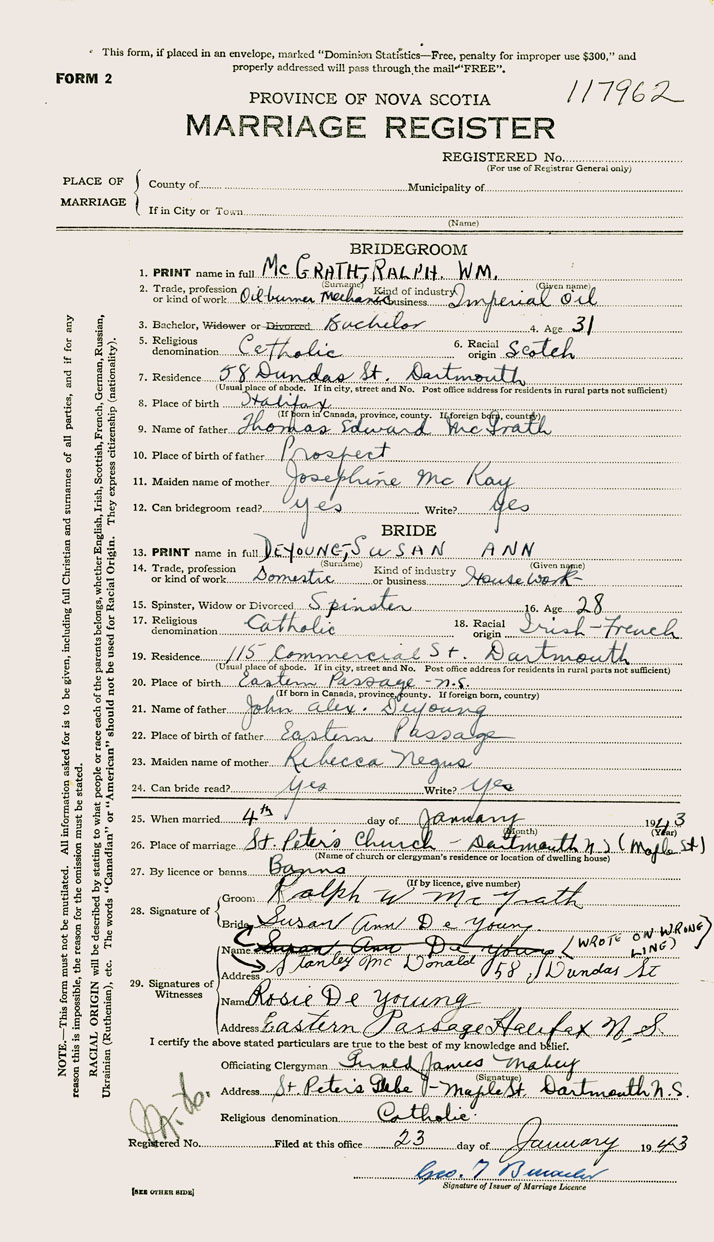 This form, if placed in an envelope, marked "Dominion Statistics—Free, penalty for improper use $300," and
properly addressed will pass through the mail "FREE".
FORM 2
117962
PROVINCE OF NOVA SCOTIA
MARRIAGE REGISTER
REGISTERED No.
(For use of Registrar General only)
PLACE OF MARRIAGE
County of Municipality of
If in City or Town
(Name)
BRIDEGROOM
1. PRINT name in full McGRATH, RALPH. WM.
(Surname) (Given name)
2. Trade, profession or kind of work Oil burner Mechanic Kind of industry or business Imperial Oil
3. Bachelor, Widower or Divorced Bachelor 4. Age 31
5. Religious denomination Catholic 6. Racial origin Scotch
7. Residence 58 Dundas St. Dartmouth
(Usual place of abode. If in city, street and No. Post office address for residents in rural parts not sufficient)
8. Place of birth Halifax
(If born in Canada, province, county. If foreign born, country)
9. Name of father Thomas Edward McGrath
10. Place of birth of father Prospect
11. Maiden name of mother Josephine McKay
12. Can bridegroom read? yes Write? yes
BRIDE
13. PRINT name in full DEYOUNG, SUSAN ANN
(Surname) (Given name)
14. Trade, profession or kind of work Domestic Kind of industry or business Housework
15. Spinster, Widow or Divorced Spinster 16. Age 28
17. Religious denomination Catholic 18. Racial origin Irish-French
19. Residence 115 Commercial St. Dartmouth
(Usual place of abode. If in city, street and No. Post office address for residents in rural parts not sufficient)
20. Place of birth Eastern Passage - N.S.
(If born in Canada, province, county. If foreign born, country)
21. Name of father John Alex. Deyoung
22. Place of birth of father Eastern Passage
23. Maiden name of mother Rebecca Negus
24. Can bride read? yes Write? yes
25. When married 4th day of January 1943
(Month) (Year)
26. Place of marriage St. Peter's Church - Dartmouth N.S (Maple St)
(Name of church or clergyman's residence or location of dwelling house)
27. By licence or banns Banns
(If by licence, give number)
28. Signature of
Groom Ralph W McGrath
Bride Susan Ann De Young
29. Signatures of Witnesses
Name Susan Ann De Young (WROTE ON WRONG LING)
Stanley McDonald
Address 58 Dundas St
Name Rosie De Young
Address Eastern Passage Halifax N.S.
I certify the above stated particulars are true to the best of my knowledge and belief.
Officiating Clergyman Gerald James Mabey
(Signature)
Address St Peter's Glebe - Maple St. Dartmouth N.S.
Religious denomination Catholic.
Registered No. Filed at this office 23 day of January 1943
Geo. T
Signature of Issuer of Marriage Licence
[SEE OTHER SIDE]
NOTE.—This form must not be mutilated. All information asked for is to be given, including full Christian and surnames of all parties, and if for any
reason this is impossible, the reason for the omission must be stated.
RACIAL ORIGIN will be described by stating to what people or race each of the parents belongs, whether English, Irish, Scottish, French, German, Russian,
Ukrainian (Ruthenian), etc. The words "Canadian" or "American" should not be used for Racial Origin. They express citizenship (nationality).